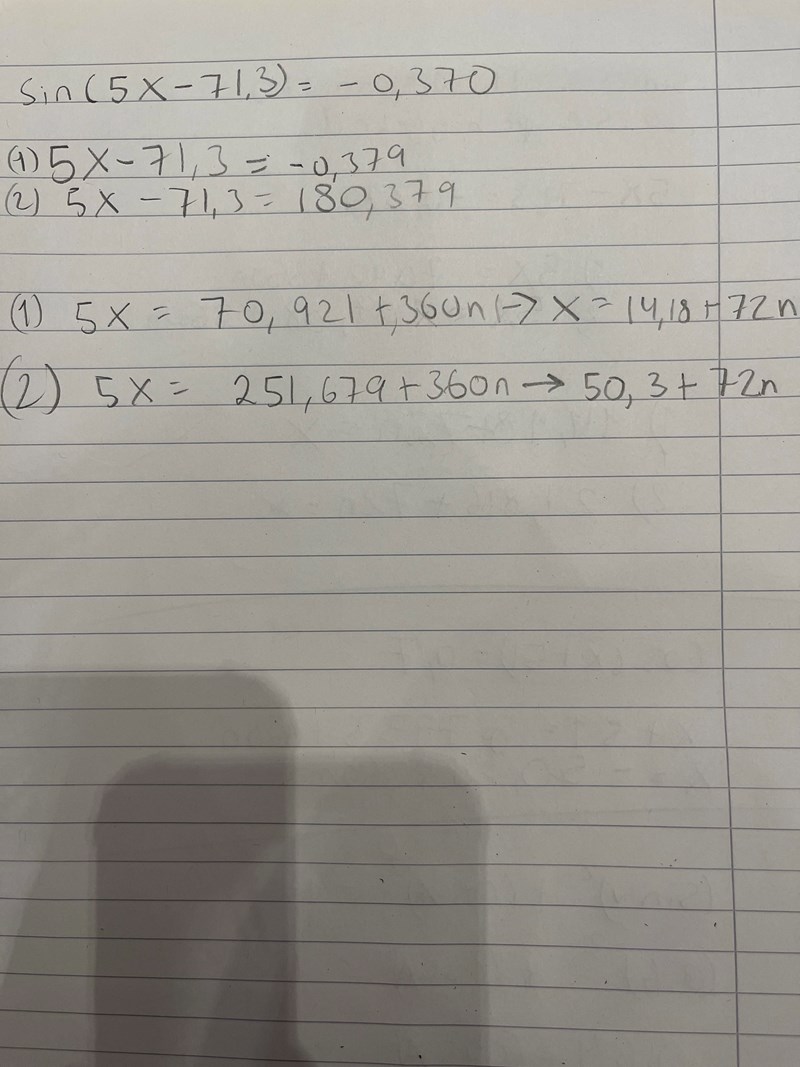 sin(5x-71,3)= -0,370
(1) 5x-71,3 = -0,379
(2) 5x-71,3= 180,379
(1) 5x = 70,921+360n → x = 14,18+72n
(2) 5x = 251,679+360n → 50,3+72n